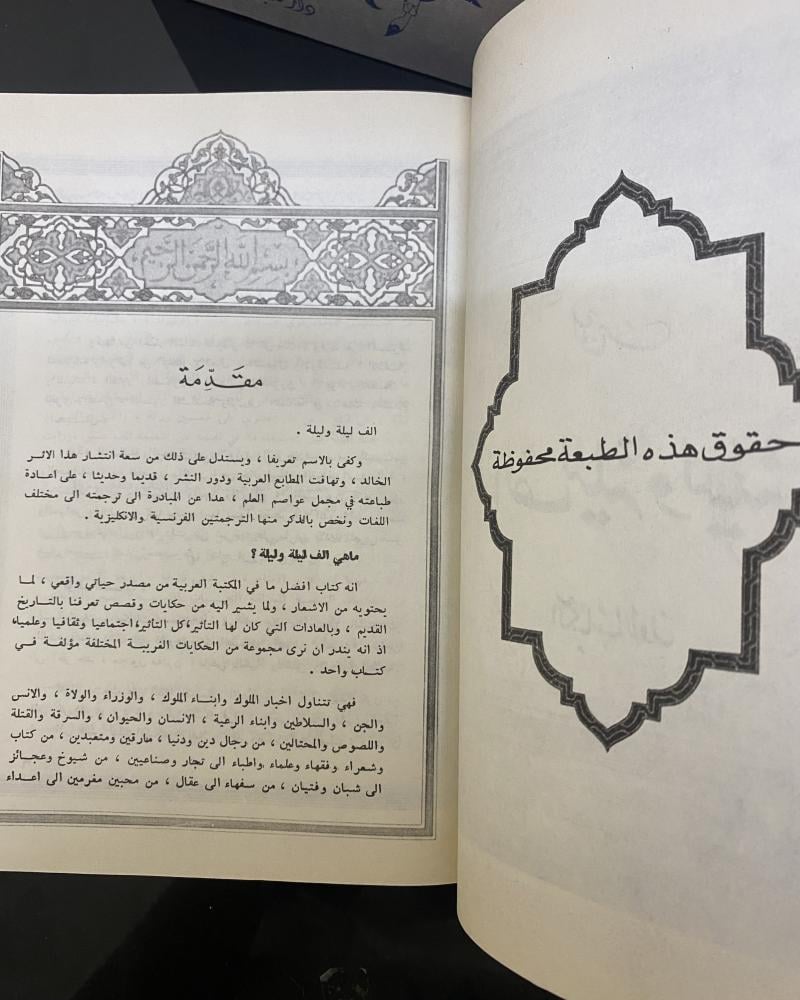 حقوق هذه الطبعة محفوظة
بسم الله الرحمن الرحيم
مقَدِّمَة
الف ليلة وليلة .
وكفى بالاسم تعريفا ، ويستدل على ذلك من سعة انتشار هذا الاثر
الخالد ، وتهافت المطابع العربية ودور النشر ، قديما وحديثا ، على اعادة
طباعته في مجمل عواصم العلم ، عدا عن المبادرة الى ترجمته الى مختلف
اللغات ونخص بالذكر منها الترجمتين الفرنسية والانكليزية .
ماهي الف ليلة وليلة ؟
انه كتاب افضل ما في المكتبة العربية من مصدر حياتي واقعي ، لما
يحتويه من الاشعار ، ولما يشير اليه من حكايات وقصص تعرفنا بالتاريخ
القديم ، وبالعادات التي كان لها التأثير، كل التأثير، اجتماعيا وثقافيا وعلميا،
اذ انه يندر ان نرى مجموعة من الحكايات الغريبة المختلفة مؤلفة في
كتاب واحد .
فهي تتناول اخبار الملوك وابناء الملوك ، والوزراء والولاة ، والانس
والجن ، والسلاطين وابناء الرعية ، الانسان والحيوان ، والسرقة والقتلة
واللصوص والمحتالين ، من رجال دين ودنيا ، مارقين ومتعبدين ، من كتاب
وشعراء وفقهاء وعلماء واطباء الى تجار وصناعيين ، من شيوخ وعجائز
الى شبان وفتيان ، من سفهاء الى عقال ، من محبين مغرمين الى اعداء